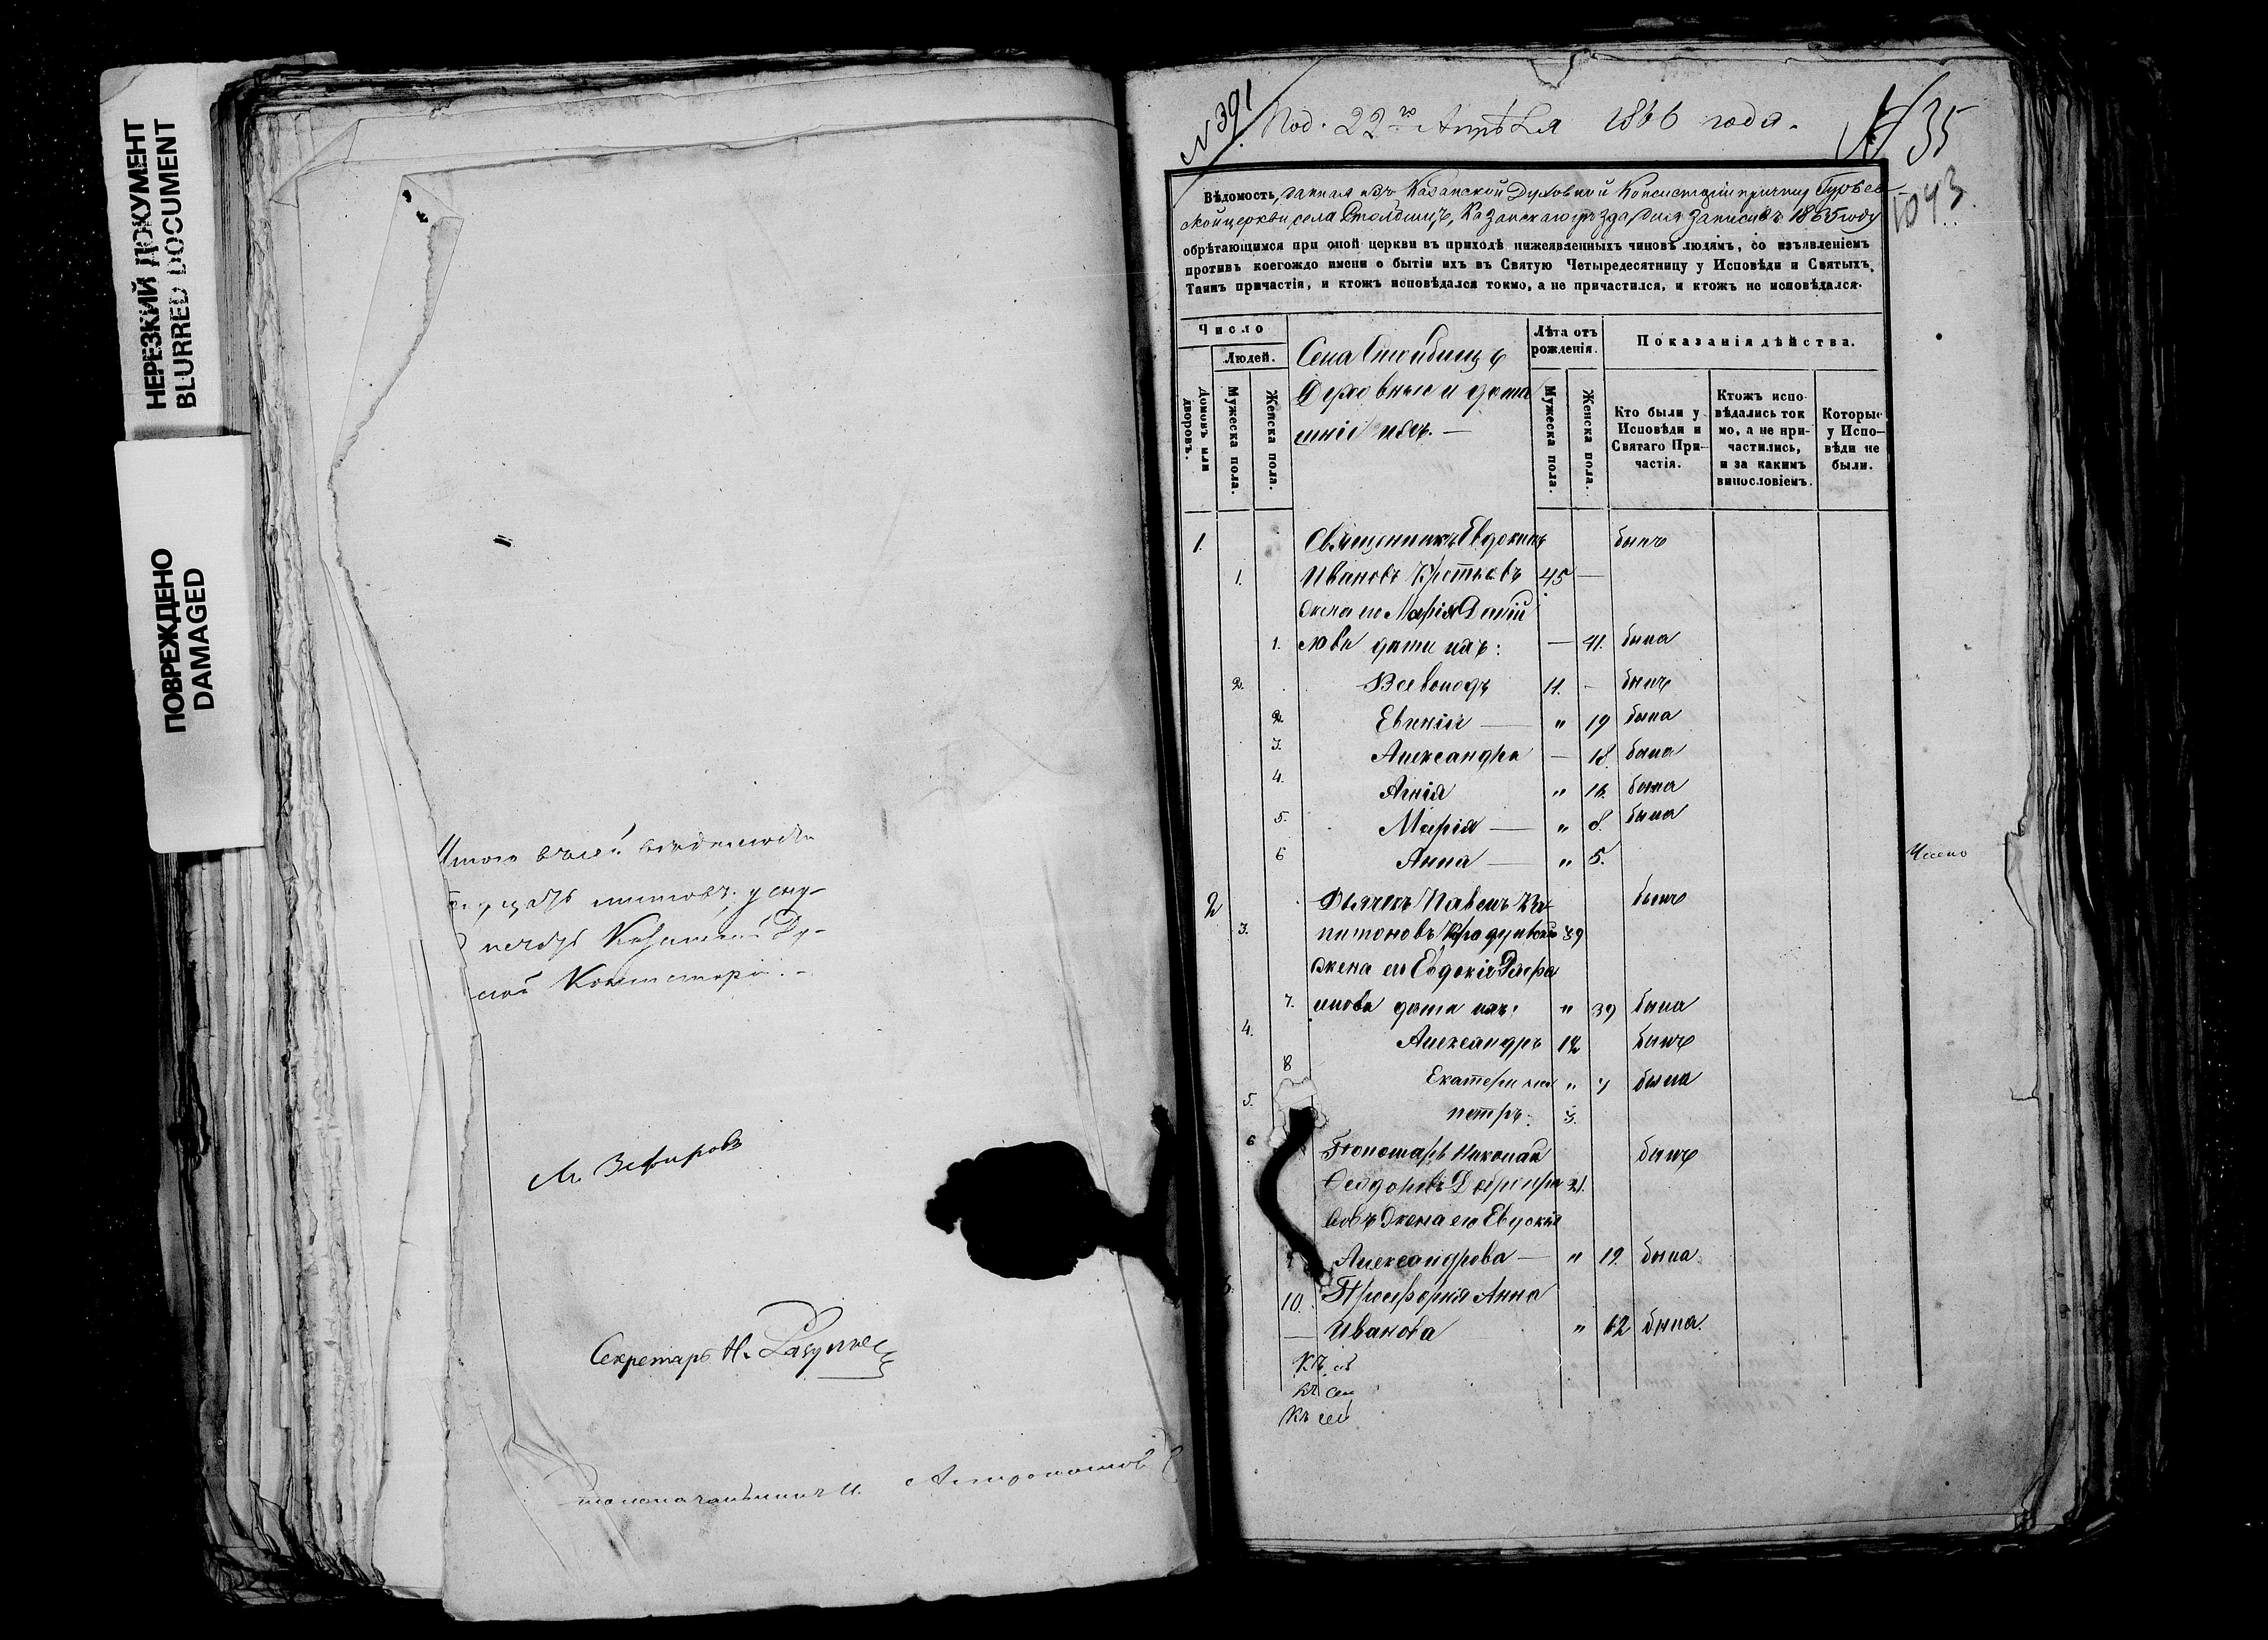 НЕРЕЗКИЙ ДОКУМЕНТ
BLURRED DOCUMENT
ПОВРЕЖДЕНО
DAMAGED
Итого въ сей
листовъ; у сну-
Казанской Ду-
Консисторіи.
М. Зефировъ
Секретарь Н.
N 391
Под. 22го Апрѣля 1866 года.
№ 35
1043
Вѣдомость, данная изъ Казанской Духовной Консисторіи причту Гурьев-
ской церкви, села Столбищъ, Казанскаго уѣзда, для записи въ 1865 году
обрѣтающимся при оной церкви въ приходѣ нижеявленныхъ чиновъ людямъ, со изъявленіемъ
противъ коегождо имени о бытіи ихъ въ Святую Четыредесятницу у Исповѣди и Святыхъ
Таинъ причастія, и ктожъ исповѣдался токмо, а не причастился, и ктожъ не исповѣдался.
Число
Людей.
Домовъ или дворовъ.
Мужеска пола.
Женска пола.
Села Столбищъ
Духовные и дома
шніе ихъ. —
Лѣта отъ рожденія.
Мужеска пола.
Женска пола.
Показанія дѣйства.
Кто были у Исповѣди и Святаго При- частія.
Ктожъ испо- вѣдались ток мо, а не при- частились, и за какимъ винословіемъ.
Которые у Испо- вѣди не были.
1. Священникъ Евдокимъ былъ
1. Ивановъ Кротковъ 45 —
жена его Марія Даній
1. лова дѣти ихъ: — 41. была
2. Всеволодъ 11. — былъ
2. Евгенія — " 19 была
3. Александра — 18. была
4. Агнія " 16. была
5. Марія — " 8. была
6 Анна — " 5.
2 Дьячекъ Павелъ Ка- былъ
3. питоновъ 39
жена его Евдокія
7. дѣти ихъ: " 39 была
4. Александръ 12 былъ
8 Екатерина " 7 была
5. Петръ. 3.
6 Пономарь Николай былъ
Ѳеодоровъ 21.
вовъ жена его Евдокія
9 Александрова — " 19. была.
10. Просфорня Анна
— Иванова " 62 была.
Къ сей
Къ сей